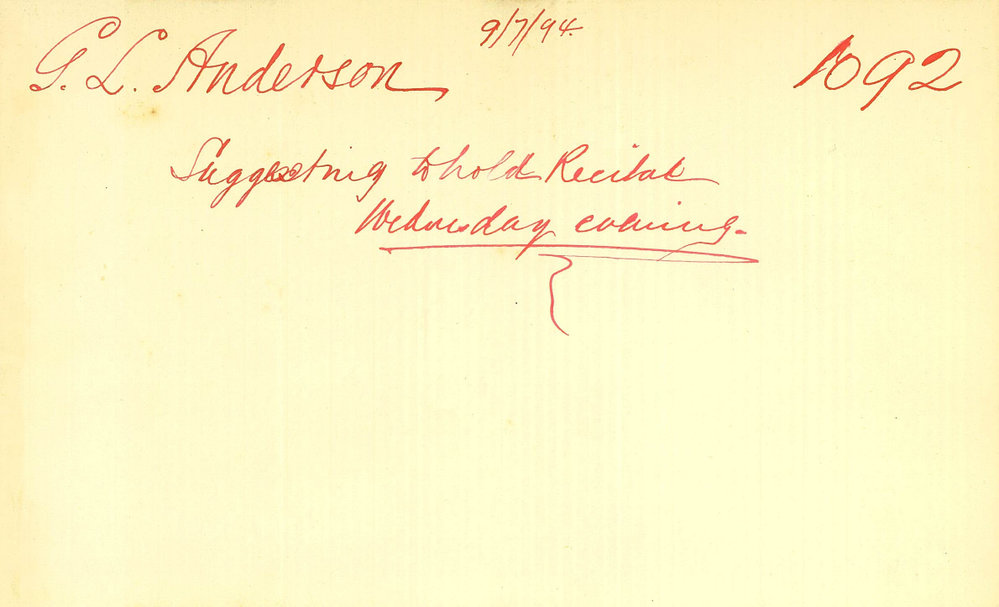 9/7/94.
G. L. Anderson 1092
Suggesting to hold Recital
Wednesday evening.